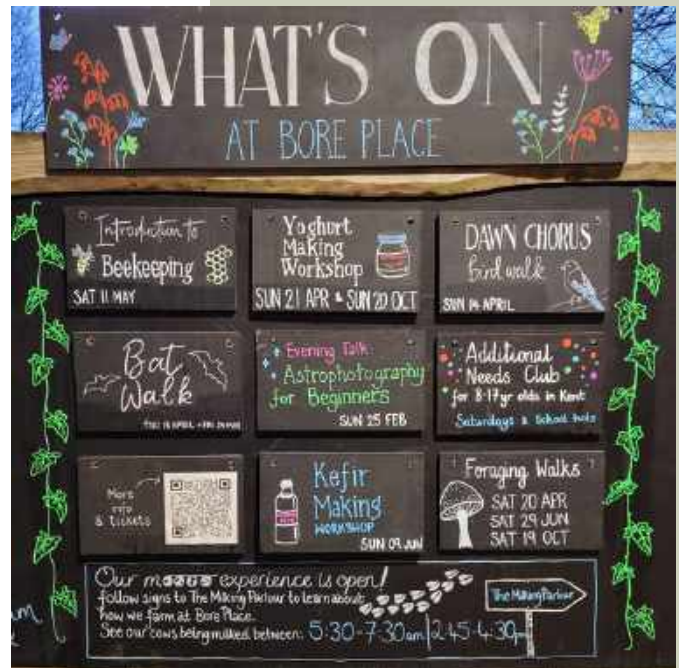 WHAT'S ON
AT BORE PLACE
Introduction to
Beekeeping
SAT 11 MAY
Yoghurt
Making
Workshop
SUN 21 APR & SUN 20 OCT
DAWN CHORUS
bird walk
SUN 14 APRIL
Bat
Walk
Evening Talk:
Astrophotography
for Beginners
SUN 25 FEB
Additional
Needs Club
for 8-17yr olds in Kent
Saturdays & School hols
More
info
& tickets
Kefir
Making
WORKSHOP
SUN 09 JUN
Foraging Walks
SAT 20 APR
SAT 29 JUN
SAT 19 OCT
Our experience is open!
follow signs to The Milking Parlour to learn about
how we farm at Bore Place.
See our cows being milked between: 5:30-7:30am | 2:45-4:30pm
The Milking Parlour